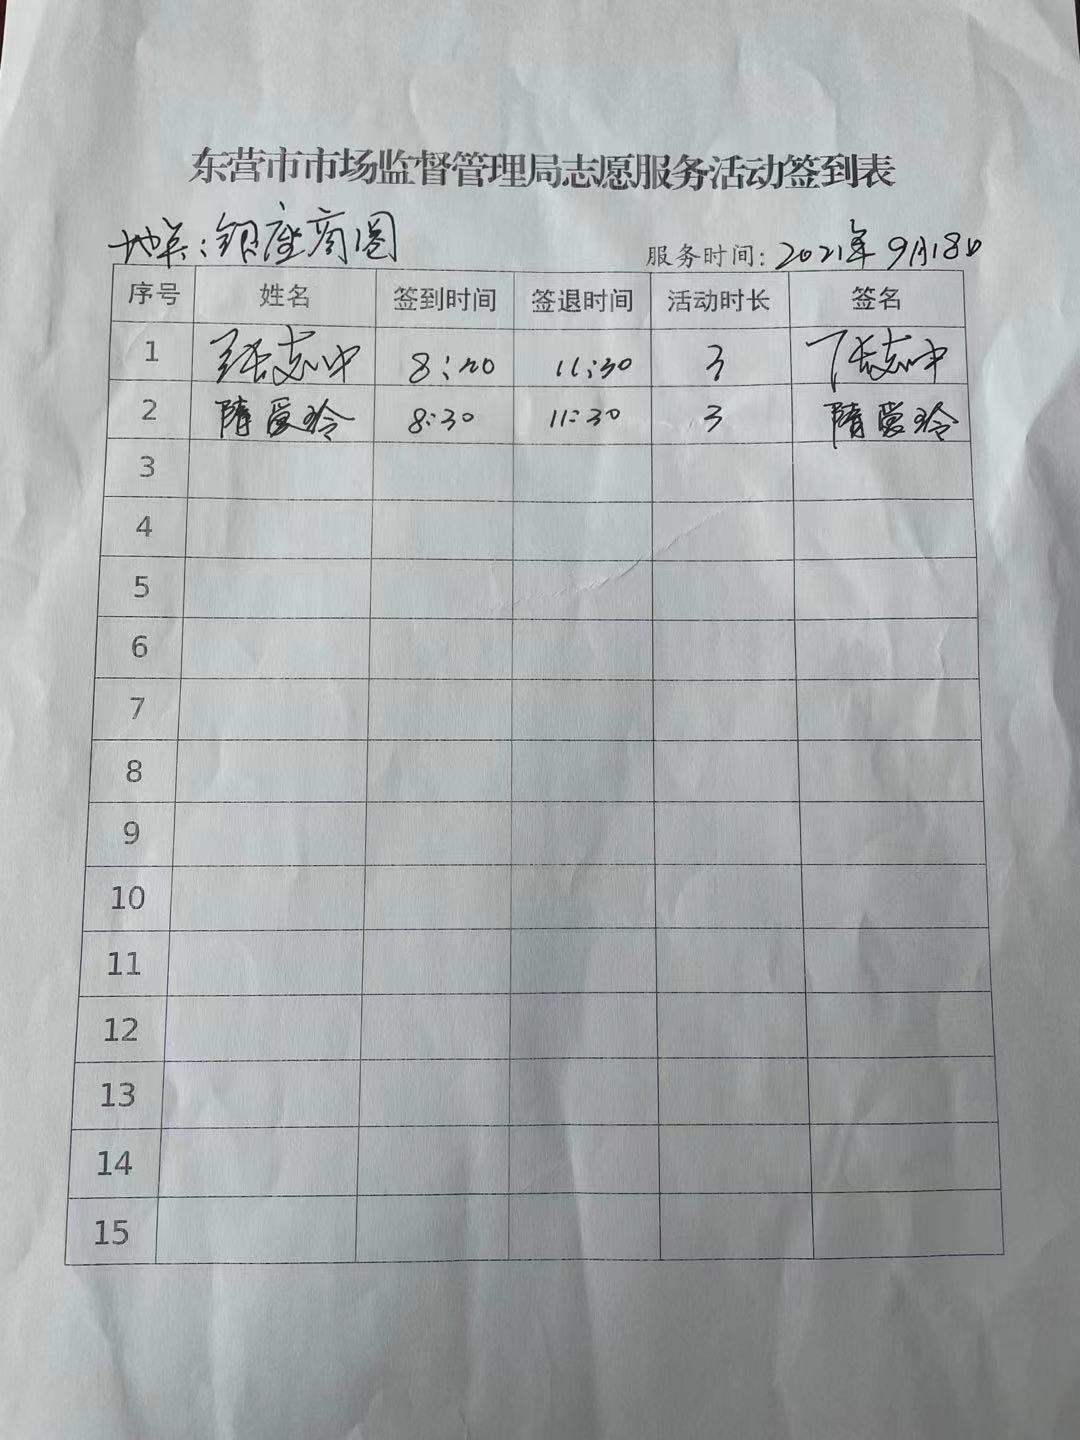 东营市市场监督管理局志愿服务活动签到表
地点：银座商圈 服务时间：2021年9月18日
序号 姓名 签到时间 签退时间 活动时长 签名
1 张志中 8:20 11:30 3 张志中
2 隋爱玲 8:30 11:30 3 隋爱玲
3
4
5
6
7
8
9
10
11
12
13
14
15